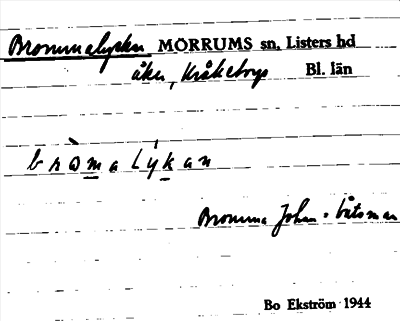 Brommalycken MÖRRUMS sn, Listers hd
åker, Kråketorps Bl. län
bròmalýkan
Bromma John · båtsman
Bo Ekström 1944